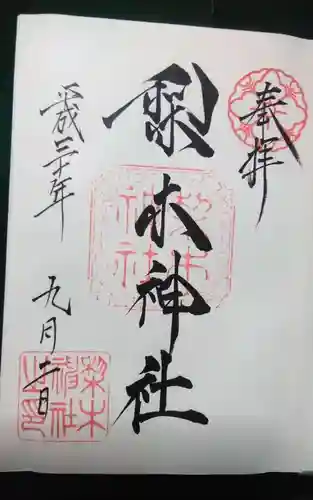 奉拝
梨木神社
平成三十年
九月二日
梨木
神社
梨木
神社
之印